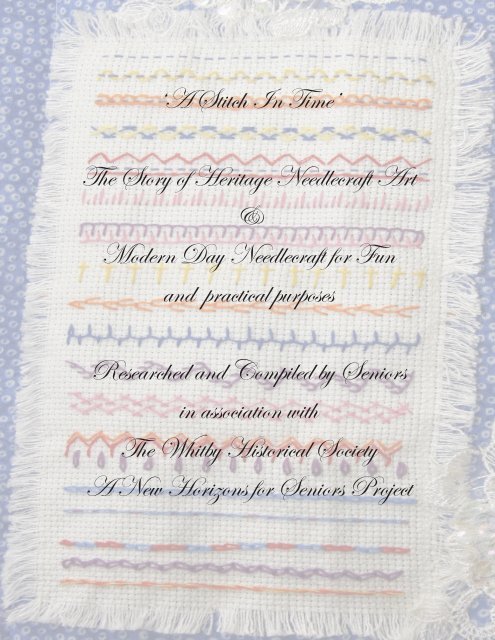 'A Stitch In Time'
The Story of Heritage Needlecraft Art
&
Modern Day Needlecraft for Fun
and practical purposes
Researched and Compiled by Seniors
in association with
The Whitby Historical Society
A New Horizons for Seniors Project